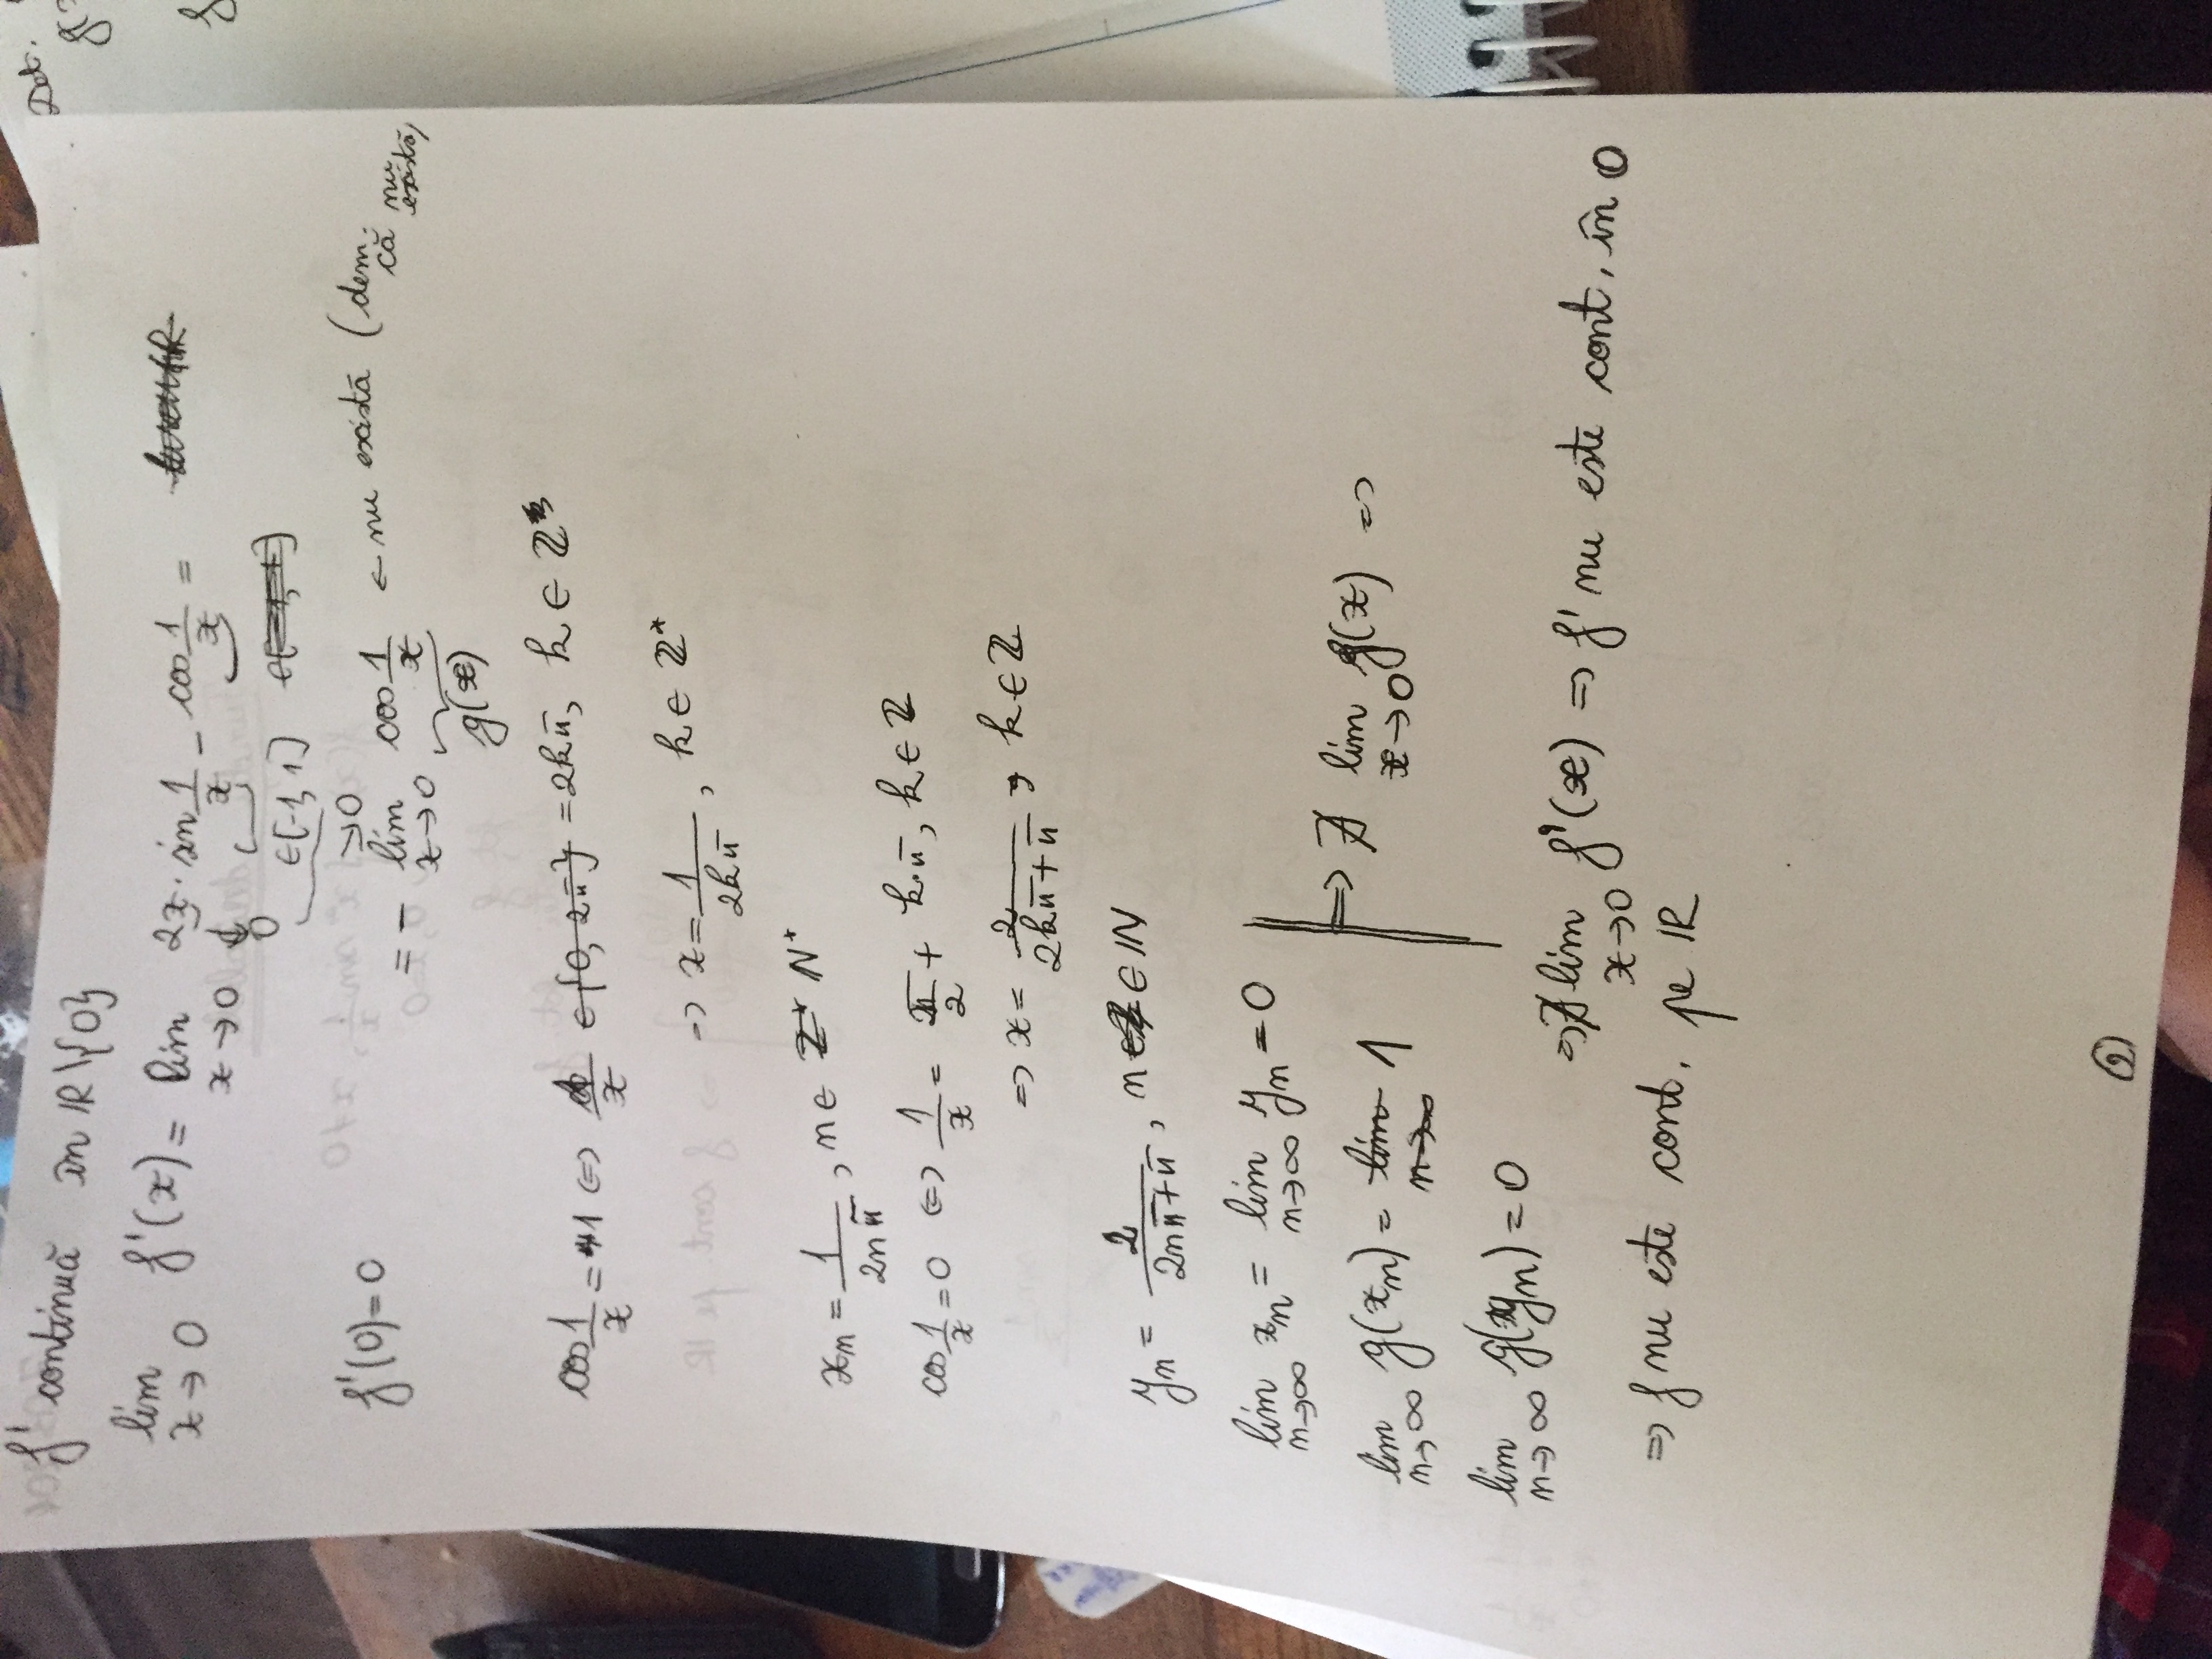 f' continuă în ℝ\{0}
lim x→0 f'(x) = lim x→0 2x · sin 1/x - cos 1/x =
↓ 0 ∈[-1, 1] ∈[-1, 1]
→0
f'(0) = 0
= - lim x→0 cos 1/x ← nu există (dem. că nu există)
g(x)
cos 1/x = 1 ⇔ 1/x ∈ {0, 2π} = 2kπ, k ∈ ℤ*
⇒ x = 1/2kπ, k ∈ ℤ*
xn = 1/2nπ, n ∈ ℤ* N*
cos 1/x = 0 ⇔ 1/x = π/2 + k·π, k ∈ ℤ
⇒ x = 2/2kπ+π, k ∈ ℤ
yn = 2/2nπ+π, n ∈ ℕ
lim n→∞ xn = lim n→∞ yn = 0
lim n→∞ g(xn) = lim n→∞ 1
⇒ ∄ lim x→0 g(x) ⇒
lim n→∞ g(yn) = 0
⇒ ∄ lim x→0 f'(x) ⇒ f' nu este cont. în 0
⇒ f nu este cont. pe ℝ
2
Det.